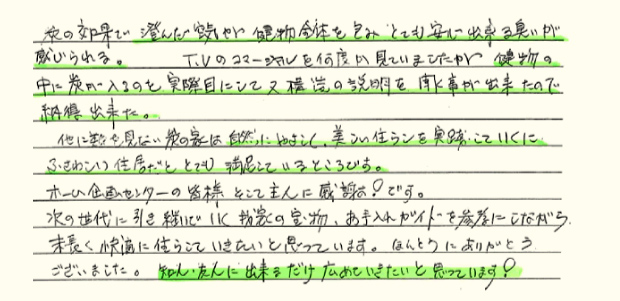 炭の効果で澄んだ空気が建物全体を包みとても安心出来る臭いが
感じられる。 T.Vのコマーシャルを何度か見ていましたが建物の
中に炭が入るのを実際目にして又構造の説明を聞く事が出来たので
納得出来た。
他に類を見ない炭の家は自然にやさしく、美しい住ランを実践していくに
ふさわしい住居だととても満足しているところです。
ホーム企画センターの皆様そして主人に感謝!です。
次の世代に引き継いでいく我家の宝物、お手入れガイドを参考にしながら
末長く快適に住らしていきたいと思っています。ほんとうにありがとう
ございました。知人・友人に出来るだけ広めていきたいと思っています!